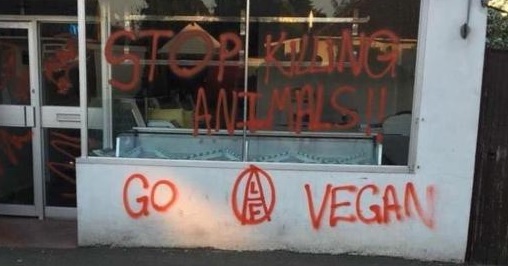 STOP KILLING
ANIMALS!!
GO ALF VEGAN